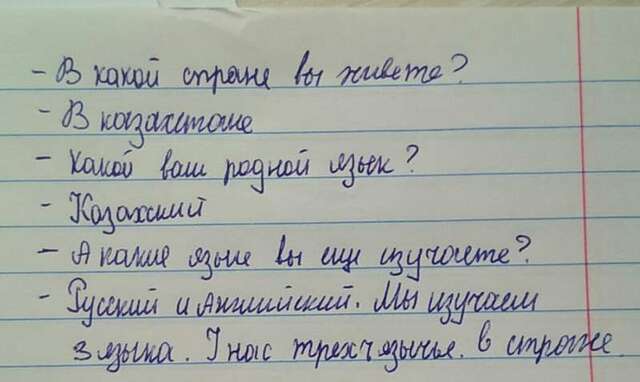 - В какой стране вы живете?
- В казахстане
- Какой ваш родной язык?
- Казахский
- А какие языке вы еще изучаете?
- Русский и Английский. Мы изучаем
3 языка. У нас трехъязычья. в стране